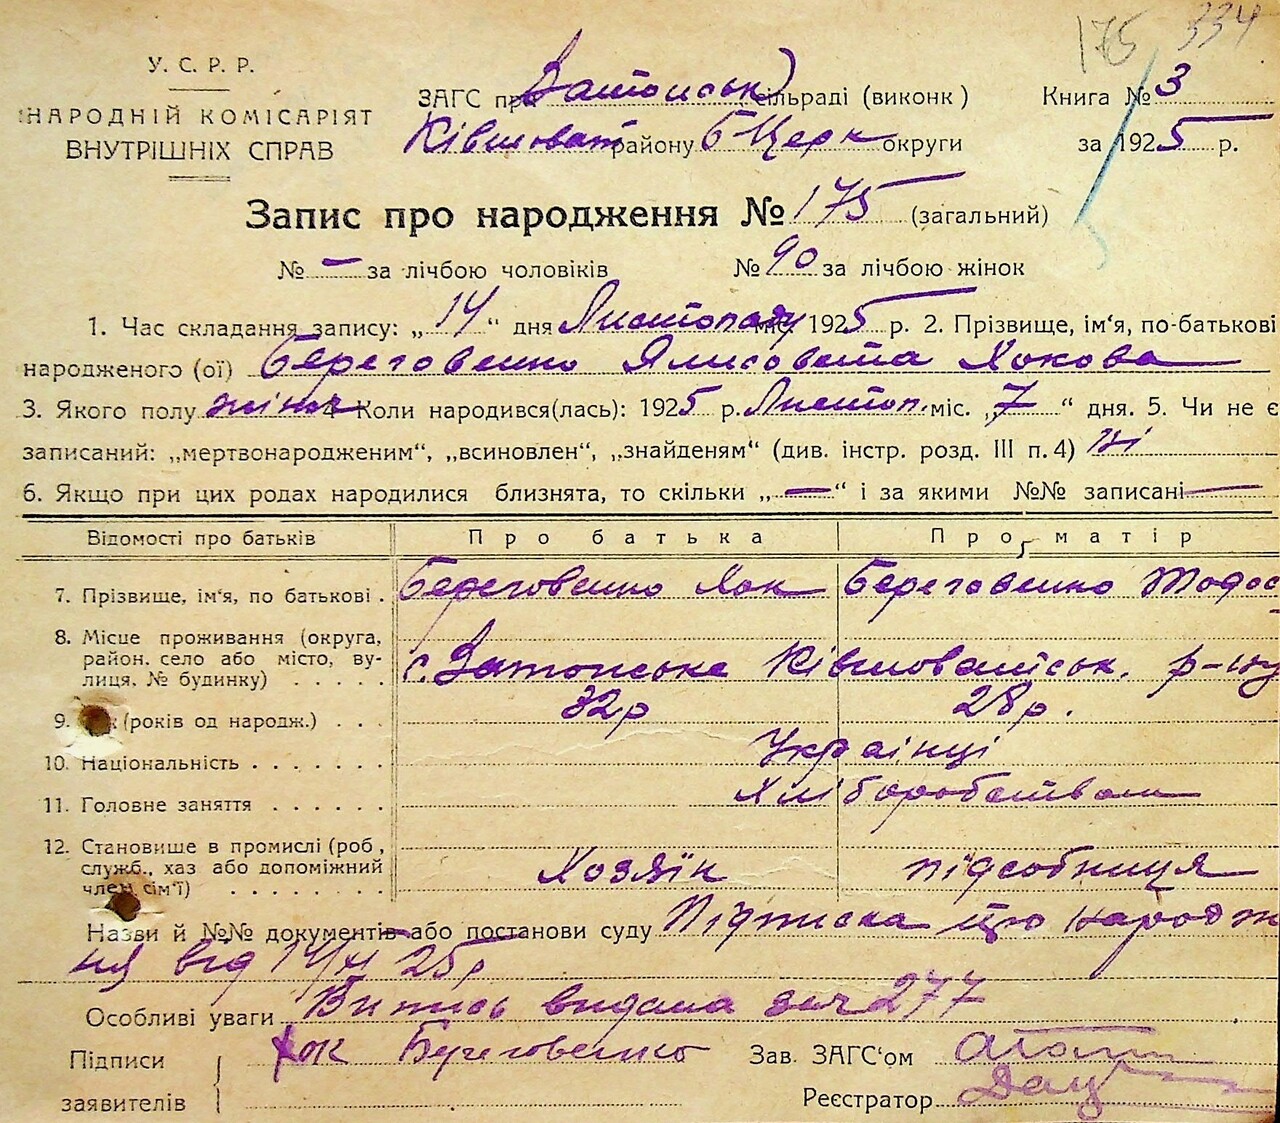 175 334
У. С. Р. Р.
НАРОДНІЙ КОМІСАРІЯТ
ВНУТРІШНІХ СПРАВ
ЗАГС при Затонськ сільраді (виконк)
Ківшоват району Б Церк округи
Книга № 3
за 1925 р.
Запис про народження № 175 (загальний)
№ — за лічбою чоловіків № 90 за лічбою жінок
1. Час складання запису: „14“ дня Листопаду міс. 1925 р. 2. Прізвище, ім'я, по-батькові
народженого (ої) Береговенко Ялисовета Хокова
3. Якого полу жіноч 4. Коли народився(лась): 1925 р. Листоп. міс. „7“ дня. 5. Чи не є
записаний: „мертвонародженим“, „всиновлен“, „знайденям“ (див. інстр. розд. III п. 4) ні
6. Якщо при цих родах народилися близнята, то скільки „—“ і за якими №№ записані —
Відомості про батьків Про батька Про матір
7. Прізвище, ім'я, по батькові . Береговенко Хок Береговенко Тодос
8. Місце проживання (округа,
район. село або місто, ву-
лиця, № будинку) . . . . . с. Затонське Ківшоватськ. р-ну
9. (років од народж.) . . . 32р 28р.
10. Національність . . . . . . . Українці
11. Головне заняття . . . . . . Хліборобством
12. Становище в промислі (роб,
служб., хаз або допоміжний
член сім'ї) . . . . . . . . Хозяїн підсобниця
Назви й №№ документів або постанови суду Підписка що народж
ня від 14/XI 25р
Особливі уваги Витись видана за № 277
Підписи Хок Береговенко Зав. ЗАГС'ом
заявителів Реєстратор